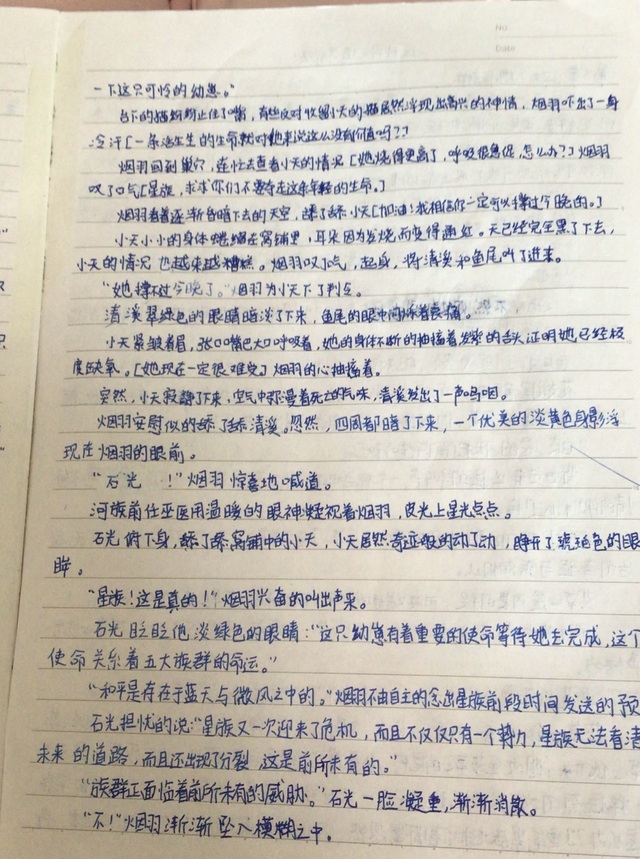 No.
Date
一下这只可怜的幼崽。"
台下的猫纷纷止住了嘴，有些反对收留小天的猫居然浮现出高兴的神情，烟羽吓出了一身
冷汗[一条活生生的生命就对他来说这么没有价值吗？？]
烟羽回到巢穴，连忙去查看小天的情况[她烧得更高了，呼吸很急促，怎么办？]烟羽
叹了口气[星族，求求你们不要夺走这条年轻的生命。]
烟羽看着逐渐昏暗下去的天空，舔了舔小天[加油！我相信你一定可以撑过今晚的。]
小天小小的身体蜷缩在窝铺里，耳朵因为发烧而变得通红。天已经完全黑了下去，
小天的情况也越来越糟糕。烟羽叹了气，起身，将清溪和鱼尾叫了进来。
"她撑不过今晚了。"烟羽为小天下了判定。
清溪翠绿色的眼睛暗淡了下来，鱼尾的眼中闪烁着哀痛。
小天紧皱着眉，张口嘴巴大口呼吸着，她的身体不断的抽搐着发紫的舌头证明她已经极
度缺氧。[她现在一定很难受]烟羽的心抽搐着。
突然，小天寂静了下来，空气中弥漫着死亡的气味，清溪发出了一声呜咽。
烟羽安慰似的舔了舔清溪。忽然，四周都暗了下来，一个优美的淡黄色身影浮
现在烟羽的眼前。
"石光 ！"烟羽惊喜地喊道。
河族前任巫医用温暖的眼神凝视着烟羽，皮光上星光点点。
石光俯下身，舔了舔窝铺中的小天，小天居然奇迹般的动了动，睁开了琥珀色的眼
眸。
"星族！这是真的！"烟羽兴奋的叫出声来。
石光眨眨他淡绿色的眼睛："这只幼崽有着重要的使命等待她去完成，这个
使命关系着五大族群的命运。"
"和平是存在于蓝天与微风之中的。"烟羽不由自主的念出星族前段时间发送的预
石光担忧的说："星族又一次迎来了危机，而且不仅仅只有一个势力，星族无法看清
未来的道路，而且还出现了分裂，这是前所未有的。"
"族群正面临着前所未有的威胁。"石光一脸凝重，渐渐消散。
"不！"烟羽渐渐坠入模糊之中。